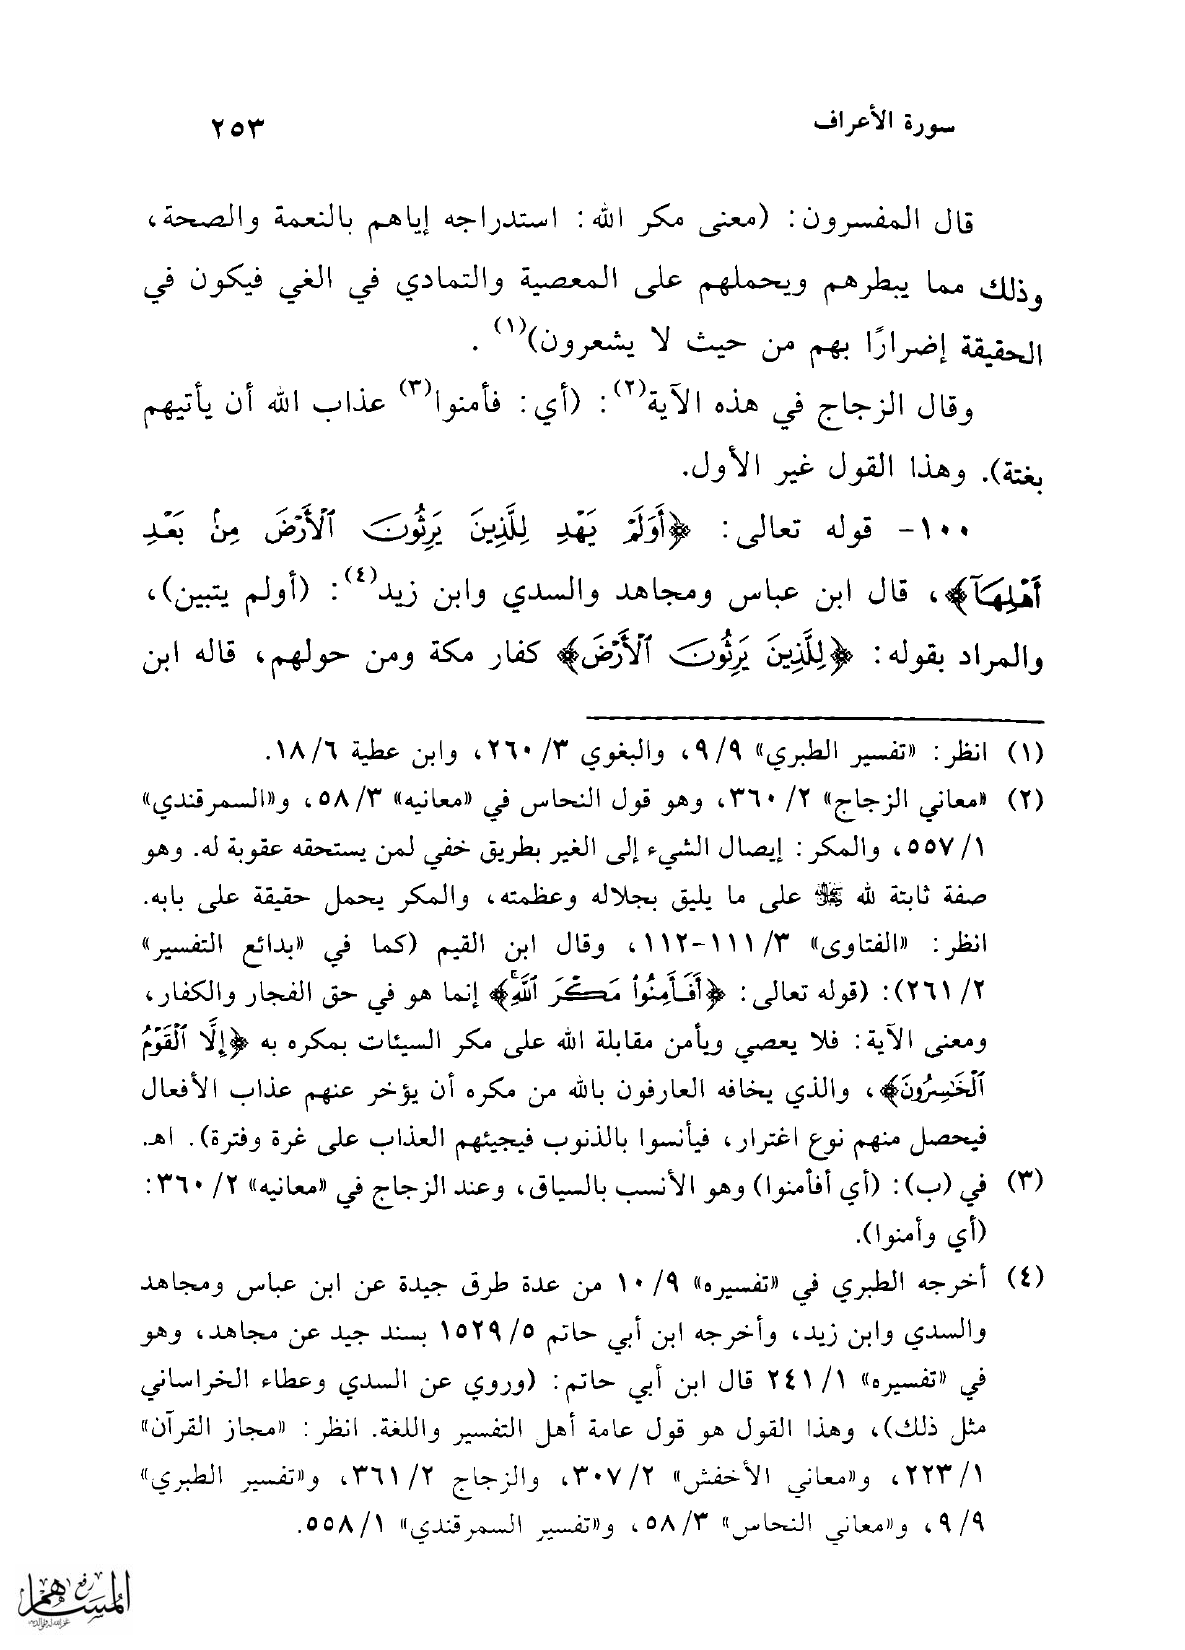 سورة الأعراف ٢٥٣
قال المفسرون: (معنى مكر الله: استدراجه إياهم بالنعمة والصحة،
وذلك مما يبطرهم ويحملهم على المعصية والتمادي في الغي فيكون في
الحقيقة إضرارًا بهم من حيث لا يشعرون)(١) .
وقال الزجاج في هذه الآية(٢): (أي: فأمنوا(٣) عذاب الله أن يأتيهم
بغتة). وهذا القول غير الأول.
١٠٠- قوله تعالى: ﴿أَوَلَمْ يَهْدِ لِلَّذِينَ يَرِثُونَ ٱلْأَرْضَ مِنۢ بَعْدِ
أَهْلِهَآ﴾، قال ابن عباس ومجاهد والسدي وابن زيد(٤): (أولم يتبين)،
والمراد بقوله: ﴿لِلَّذِينَ يَرِثُونَ ٱلْأَرْضَ﴾ كفار مكة ومن حولهم، قاله ابن
(١) انظر: «تفسير الطبري» ٩/٩، والبغوي ٣/ ٢٦٠، وابن عطية ٦/ ١٨.
(٢) «معاني الزجاج» ٢/ ٣٦٠، وهو قول النحاس في «معانيه» ٣/ ٥٨، و«السمرقندي»
١/ ٥٥٧، والمكر: إيصال الشيء إلى الغير بطريق خفي لمن يستحقه عقوبة له. وهو
صفة ثابتة لله ﷻ على ما يليق بجلاله وعظمته، والمكر يحمل حقيقة على بابه.
انظر: «الفتاوى» ٣/ ١١١-١١٢، وقال ابن القيم (كما في «بدائع التفسير»
٢/ ٢٦١): (قوله تعالى: ﴿أَفَأَمِنُوا۟ مَكْرَ ٱللَّهِ﴾ إنما هو في حق الفجار والكفار،
ومعنى الآية: فلا يعصي ويأمن مقابلة الله على مكر السيئات بمكره به ﴿إِلَّا ٱلْقَوْمُ
ٱلْخَٰسِرُونَ﴾، والذي يخافه العارفون بالله من مكره أن يؤخر عنهم عذاب الأفعال
فيحصل منهم نوع اغترار، فيأنسوا بالذنوب فيجيئهم العذاب على غرة وفترة). اهـ.
(٣) في (ب): (أي أفأمنوا) وهو الأنسب بالسياق، وعند الزجاج في «معانيه» ٢/ ٣٦٠:
(أي وأمنوا).
(٤) أخرجه الطبري في «تفسيره» ٩/ ١٠ من عدة طرق جيدة عن ابن عباس ومجاهد
والسدي وابن زيد، وأخرجه ابن أبي حاتم ٥/ ١٥٢٩ بسند جيد عن مجاهد، وهو
في «تفسيره» ١/ ٢٤١ قال ابن أبي حاتم: (وروي عن السدي وعطاء الخراساني
مثل ذلك)، وهذا القول هو قول عامة أهل التفسير واللغة. انظر: «مجاز القرآن»
١/ ٢٢٣، و«معاني الأخفش» ٢/ ٣٠٧، والزجاج ٢/ ٣٦١، و«تفسير الطبري»
٩/ ٩، و«معاني النحاس» ٣/ ٥٨، و«تفسير السمرقندي» ١/ ٥٥٨.
رفع
المساهم